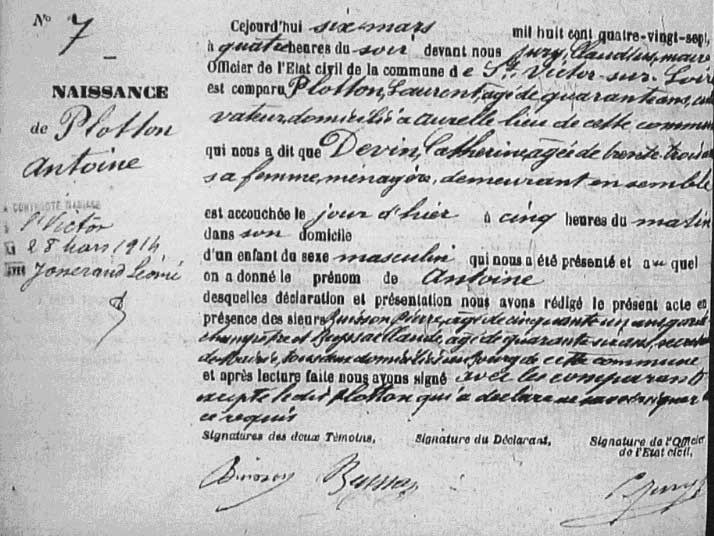 N° 7
NAISSANCE
de Plotton
Antoine
A CONTRACTÉ MARIAGE
à St Victor
le 28 Mars 1914
avec
Cejourd'hui six mars mil huit cent quatre-vingt-sept,
à quatre heures du soir devant nous Jury, Claudius, maire
Officier de l'Etat civil de la commune d e St Victor-sur-Loire
est comparu Plotton, Laurent, âgé de quarante ans, culti
vateur, domicilié à aurelle lieu de cette commune
qui nous a dit que Devin, Catherine, agée de trente trois ans
sa femme, menagère, demeurant ensemble
est accouchée le jour d'hier à cinq heures du matin
dans son domicile
d'un enfant du sexe masculin qui nous a été présenté et a uquel
on a donné le prénom de Antoine
desquelles déclaration et présentation nous avons rédigé le présent acte en
présence des sieurs Buisson Pierre, agé de cinquante un ans garde
champêtre et Buyssac Claude, agé de quarante six ans, secrétaire
de Mairie, tous deux domiciliés au Bourg de cette commune
et après lecture faite nous avons signé avec les comparants
excepté ledit Plotton qui a déclaré ne savoir signer
ce requis
Signatures des deux Témoins, Signature du Déclarant, Signature de l'Officier
de l'Etat civil,
Buisson